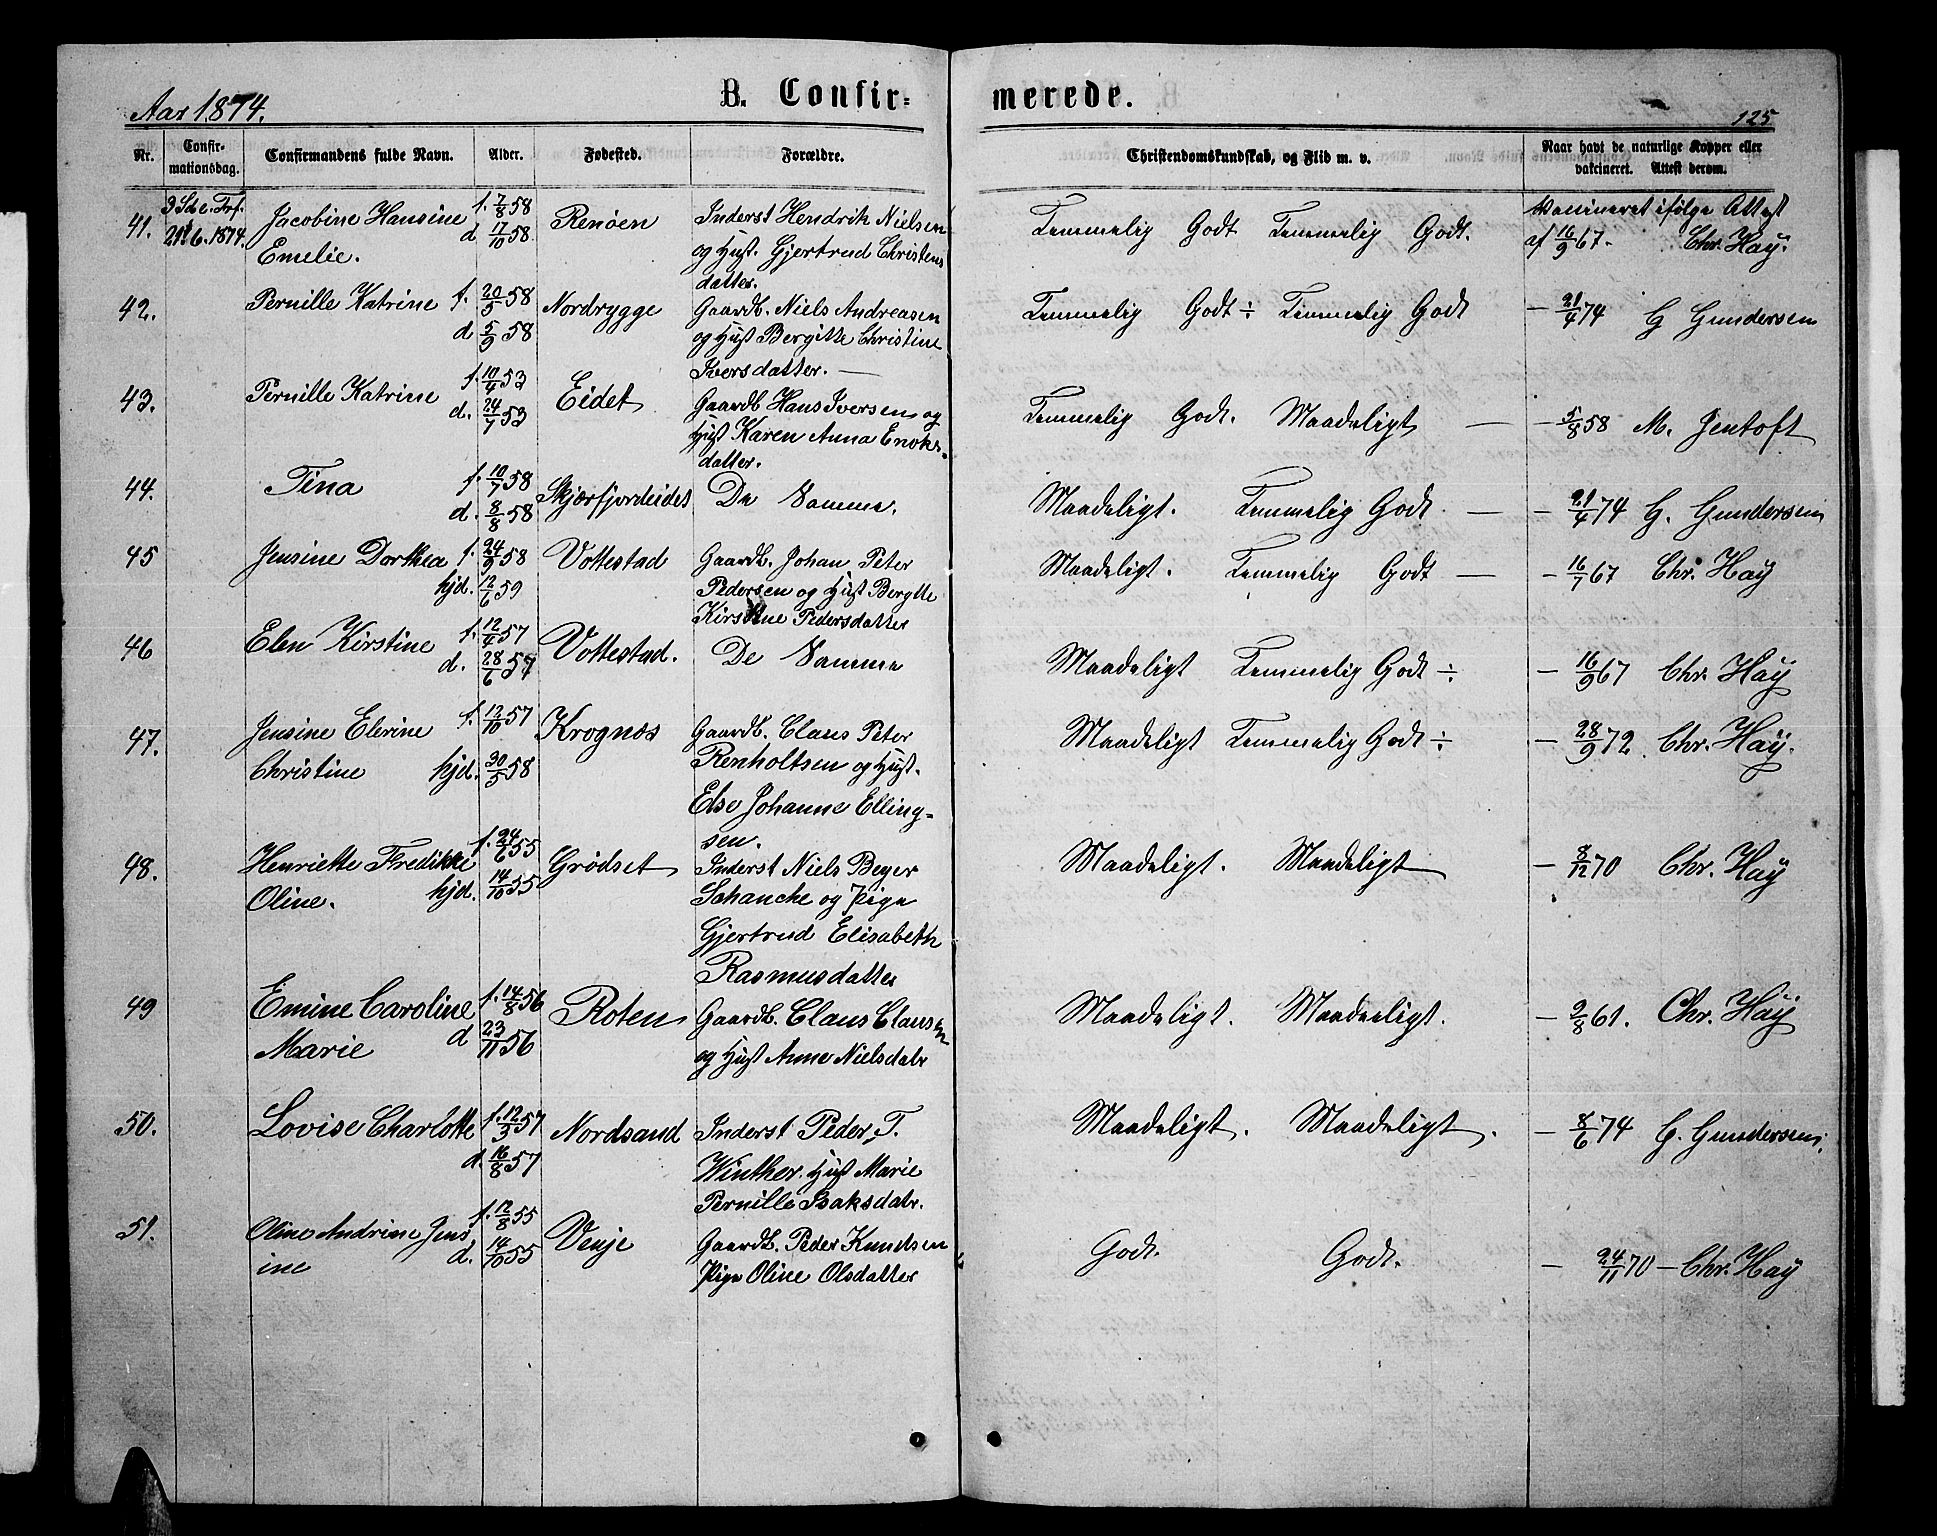 Aar 1874.
B. Confir=
merede.
125
Nr.
Confir-
mationsdag.
Confirmandens fulde Navn.
Alder.
Fødested.
Forældre.
Christendomskundskab, og Flid m. v.
Naar havt de naturlige Kopper eller
vakcineret. Attest derom.
41.
3 S. e. Tref.
21/6. 1874.
Jacobine Hansine
Emelie.
f. 7/8 58
d 17/10 58.
Renöen
Inderst Hendrik Nielsen
og Hust. Gjertrud Christens
datter.
Temmelig Godt Temmelig Godt.
Vaccineret ifølge Attest
af 16/9 67. Chr. Hay.
42.
Pernille Katrine
f. 20/5 58
d 5/9 58
Nordrygge
Gaardb. Niels Andreasen
og Hust Bergitte Christine
Iversdatter. —
Temmelig Godt ÷ Temmelig Godt
— 21/4 74 G Gundersen
43.
Pernille Katrine
f. 10/4 53
d. 24/7 53
Eidet
Gaardb Hans Iversen og
Hust Karen Anna Enoks-
datter.
Temmelig Godt. Maadeligt —
— 5/8 58 M. Jentoft
44.
Tina
f. 10/7 58
d. 8/8 58
Skjærfjordeidet
De Samme.
Maadeligt. Temmelig Godt. —
— 21/4 74 G. Gundersen
45
Jensine Dorthea
f. 24/9 58
hjd. 12/6 59
Vottestad
Gaardb. Johan Peter
Pedersen og Hust Bergitte
Kirstine Pedersdatter
Maadeligt. Temmelig Godt —
— 16/7 67 Chr. Hay
46
Elen Kirstine
f. 12/4 57
d. 28/6 57
Vottestad.
De Samme
Maadeligt Temmelig Godt ÷
— 16/9 67 Chr. Hay
47.
Jensine Elerine
Christine
f. 12/10 57
hjd. 30/5 58
Krognæs
Gaardb. Claus Peter
Renholtsen og Hust.
Else Johanne Elling=
sen.
Maadeligt Temmelig Godt ÷
— 28/9 72. Chr. Hay.
48.
Henriette Fredikke
Oline.
f. 24/6 55
hjd. 14/10 55
Grødset
Inderst Niels Beyer
Schanche og Pige
Gjertrud Elisabeth
Rasmusdatter
Maadeligt. Maadeligt
— 8/12 70 Chr. Hay
49
Emine Caroline
Marie
f. 14/8 56
d 23/11 56
Roten
Gaardb. Claus Clausen
og Hust Anne Nielsdatr
Maadeligt. Maadeligt.
— 9/8 61. Chr. Hay
50.
Lovise Charlotte
f. 12/3 57
d. 16/8 57
Nordsand
Inderst Peder T.
Winther. Hust Marie
Pernille Isaksdatr.
Maadeligt. Maadeligt.
— 8/6 74 G. Gundersen.
51.
Oline Andrine Jens
ine
f. 12/8 55
d. 14/10 55
Venje
Gaardb. Peder Knudsen
Pige Oline Olsdatter
Godt. Godt.
— 24/11 70 — Chr. Hay